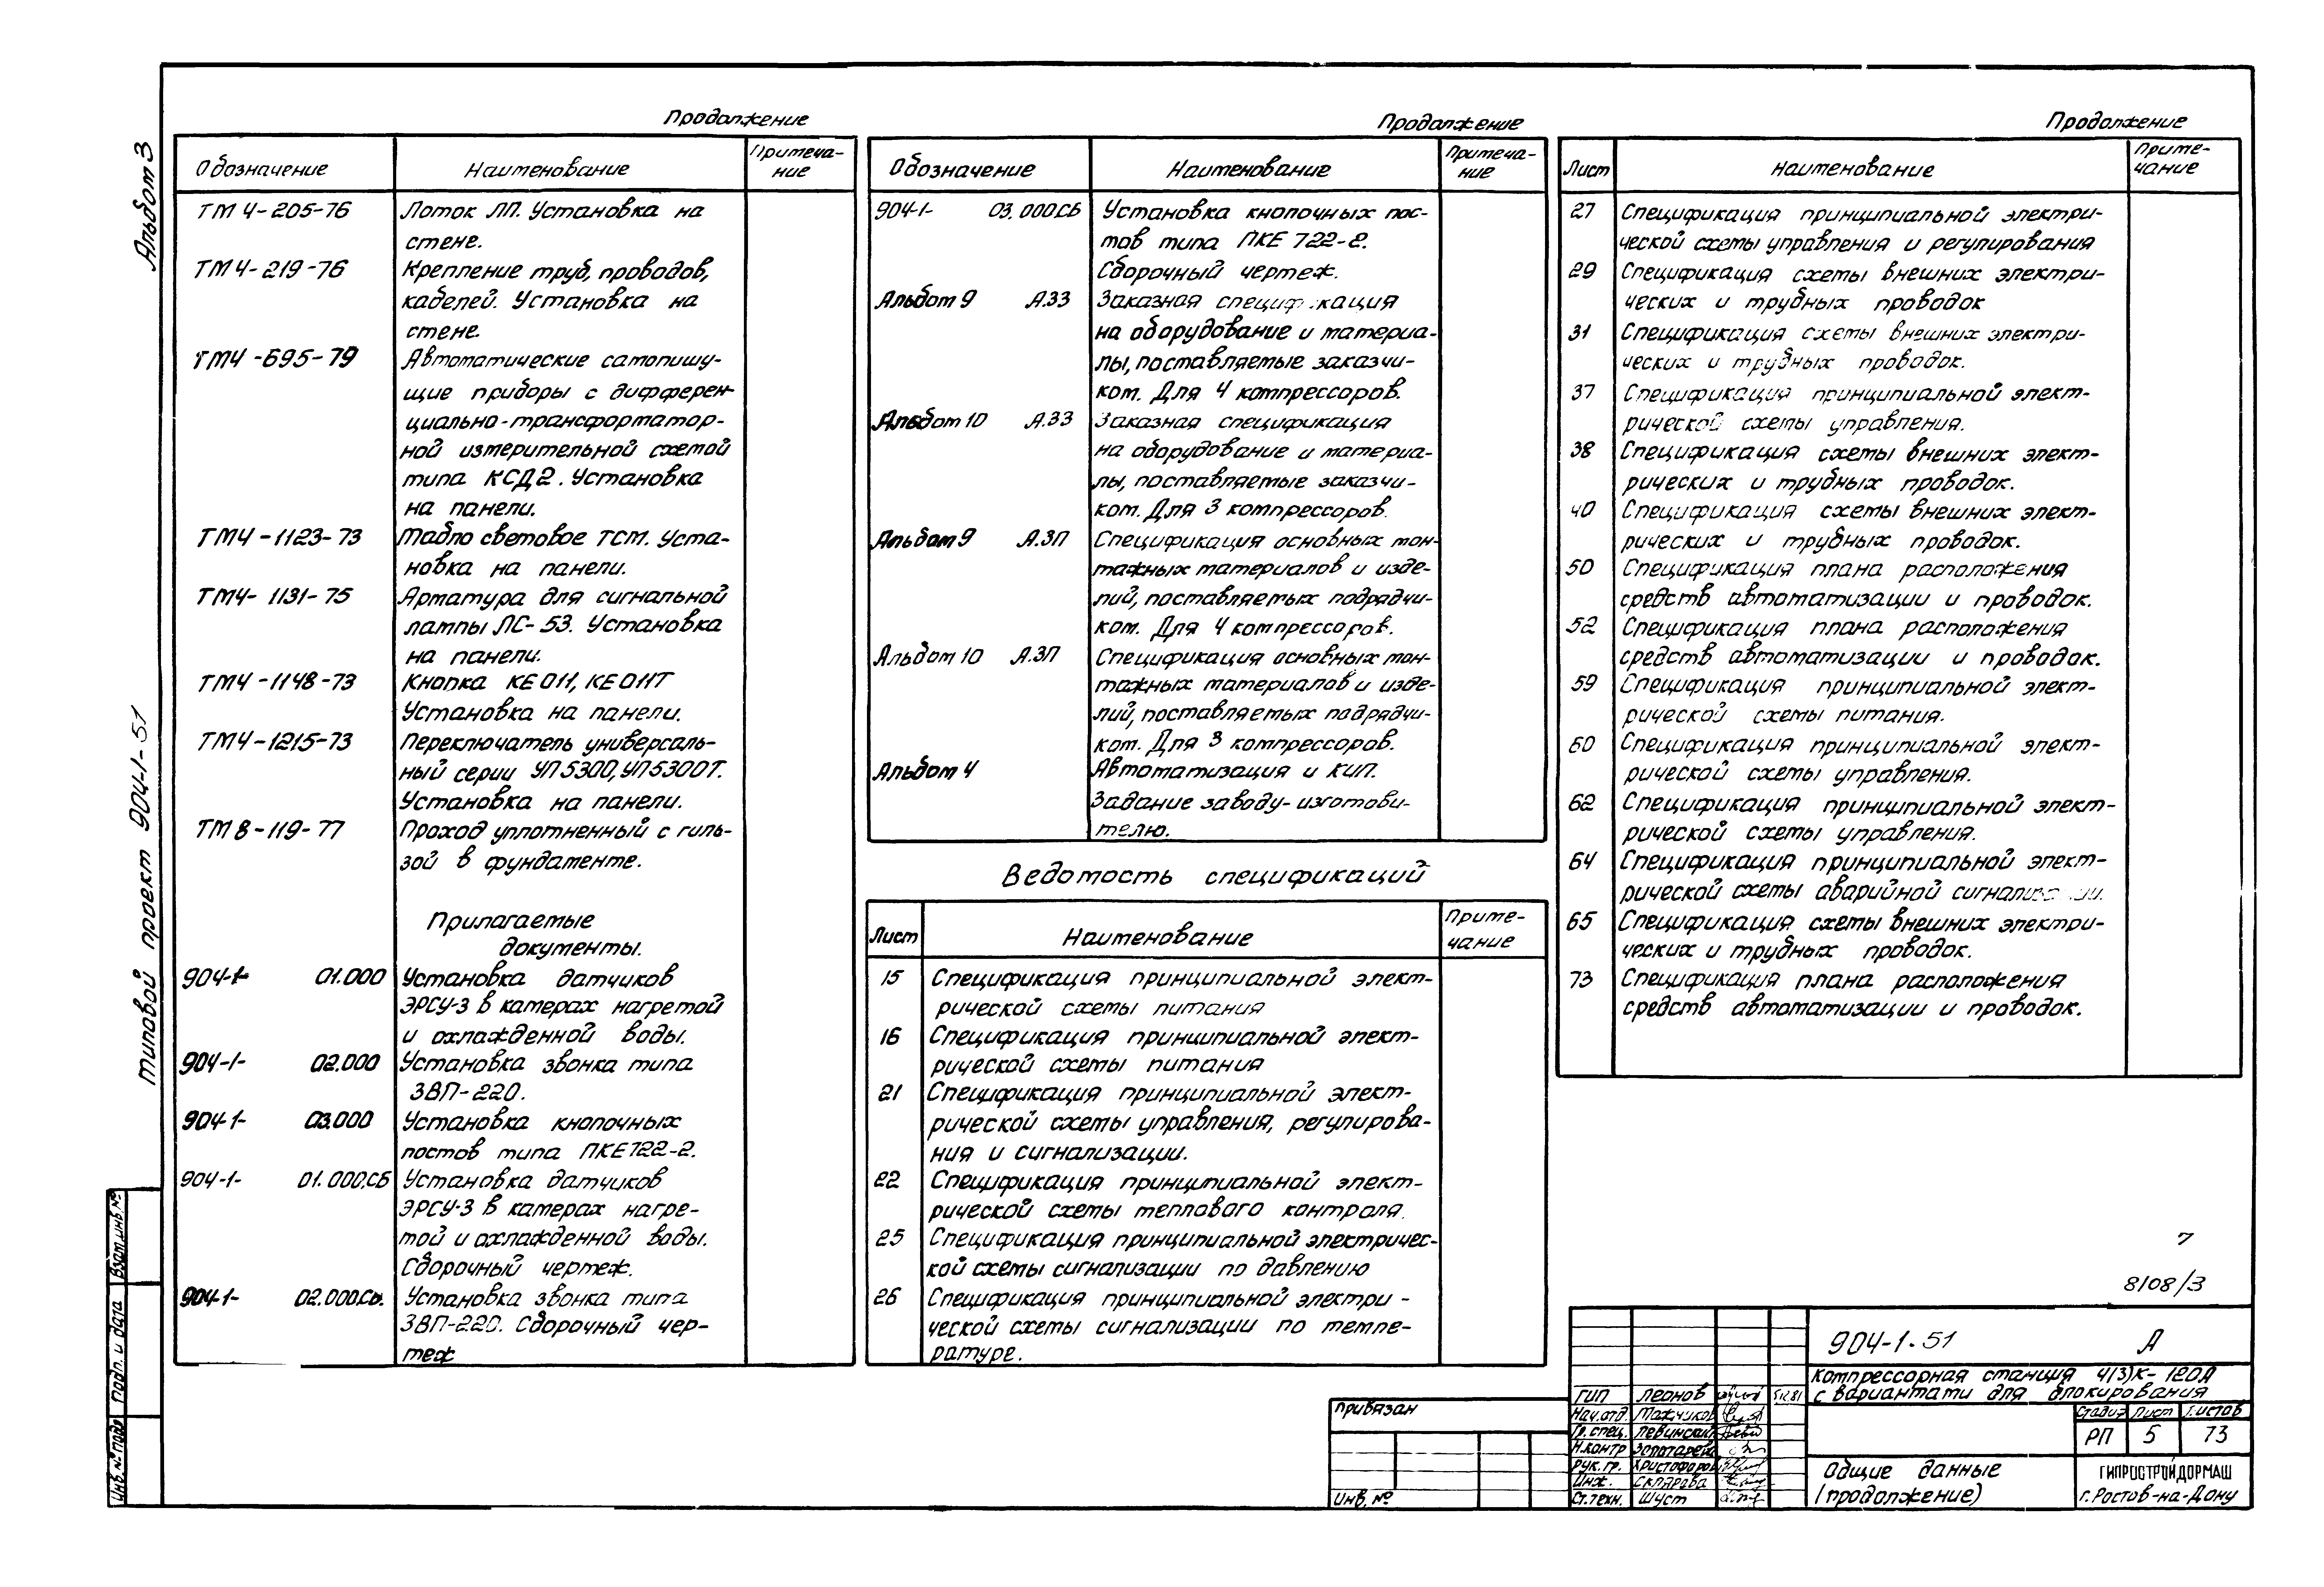 Альбом 3
типовой проект 904-1-51
Взат.инв.№
Подп. и дата
Инв.№ подл
Продолжение
Обозначение Наименование Примеча-
ние
ТМ 4-205-76 Лоток ЛП. Установка на
стене.
ТМ 4-219-76 Крепление труб, проводов,
кабелей. Установка на
стене.
ТМ4-695-79 Автоматические самопишу-
щие приборы с дифферен-
циально-трансформатор-
ной измерительной схемой
типа КСД2. Установка
на панели.
ТМ4-1123-73 Табло световое ТСМ. Уста-
новка на панели.
ТМ4-1131-75 Арматура для сигнальной
лампы ЛС-53. Установка
на панели.
ТМ4-1148-73 Кнопка КЕ 011, КЕ 011Т
Установка на панели.
ТМ4-1215-73 Переключатель универсаль-
ный серии УП5300, УП5300Т.
Установка на панели.
ТМ8-119-77 Проход уплотненный с гиль-
зой в фундаменте.
Прилагаемые
документы.
904-1- 01.000 Установка датчиков
ЭРСУ-3 в камерах нагретой
и охлажденной воды.
904-1- 02.000 Установка звонка типа
ЗВП-220.
904-1- 03.000 Установка кнопочных
постов типа ПКЕ722-2.
904-1- 01.000.СБ Установка датчиков
ЭРСУ-3 в камерах нагре-
той и охлажденной воды.
Сборочный чертеж.
904-1- 02.000.Сб. Установка звонка типа
ЗВП-220. Сборочный чер-
теж
Продолжение
Обозначение Наименование Примеча-
ние
904-1- 03.000.СБ Установка кнопочных пос-
тов типа ПКЕ 722-2.
Сборочный чертеж.
Альбом 9 А.ЗЗ Заказная спецификация
на оборудование и материа-
лы, поставляемые заказчи-
ком. Для 4 компрессоров.
Альбом 10 А.ЗЗ Заказная спецификация
на оборудование и материа-
лы, поставляемые заказчи-
ком. Для 3 компрессоров.
Альбом 9 А.ЗП Спецификация основных мон-
тажных материалов и изде-
лий, поставляемых подрядчи-
ком. Для 4 компрессоров.
Альбом 10 А.ЗП Спецификация основных мон-
тажных материалов и изде-
лий, поставляемых подрядчи-
ком. Для 3 компрессоров.
Альбом 4 Автоматизация и КИП.
Задание заводу-изготови-
телю.
Ведомость спецификаций
Лист Наименование Приме-
чание
15 Спецификация принципиальной элект-
рической схемы питания
16 Спецификация принципиальной элект-
рической схемы питания
21 Спецификация принципиальной элект-
рической схемы управления, регулирова-
ния и сигнализации.
22 Спецификация принципиальной элект-
рической схемы теплового контроля.
25 Спецификация принципиальной электричес-
кой схемы сигнализации по давлению
26 Спецификация принципиальной электри-
ческой схемы сигнализации по темпе-
ратуре.
Продолжение
Лист Наименование Приме-
чание
27 Спецификация принципиальной электри-
ческой схемы управления и регулирования
29 Спецификация схемы внешних электри-
ческих и трубных проводок
31 Спецификация схемы внешних электри-
ческих и трубных проводок.
37 Спецификация принципиальной элект-
рической схемы управления.
38 Спецификация схемы внешних элект-
рических и трубных проводок.
40 Спецификация схемы внешних элект-
рических и трубных проводок.
50 Спецификация плана расположения
средств автоматизации и проводок.
52 Спецификация плана расположения
средств автоматизации и проводок.
59 Спецификация принципиальной элект-
рической схемы питания.
60 Спецификация принципиальной элект-
рической схемы управления.
62 Спецификация принципиальной элект-
рической схемы управления.
64 Спецификация принципиальной элект-
рической схемы аварийной сигнализации.
65 Спецификация схемы внешних электри-
ческих и трубных проводок.
73 Спецификация плана расположения
средств автоматизации и проводок.
7
8108/3
904-1-51 А
Компрессорная станция 4(3)К-120А
с вариантами для блокирования
Привязан
Инв. №
ГИП Леонов
Нач.отд. Мажчиков
Гр.спец. Левинский
Н.контр Золотарева
Рук.гр. Христофоров
Инж. Склярова
Ст.техн. Шуст
Стадия Лист Листов
РП 5 73
Общие данные
(продолжение)
ГИПРОСТРОЙДОРМАШ
г.Ростов-на-Дону